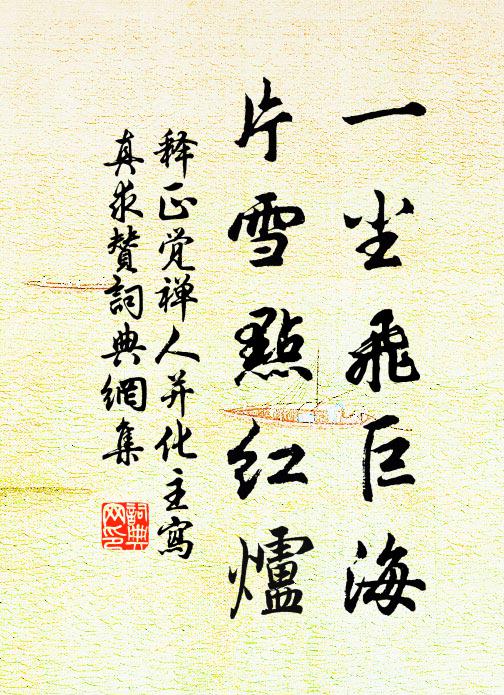 一尘飛巨海
片雪點红爐
释正觉禅人并化主寫
真求赞詞典網集
詞典
网印